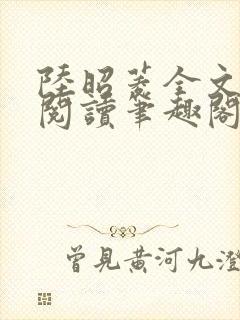 陸昭菱全文
閱讀筆趣閣
曾見黃河九澄